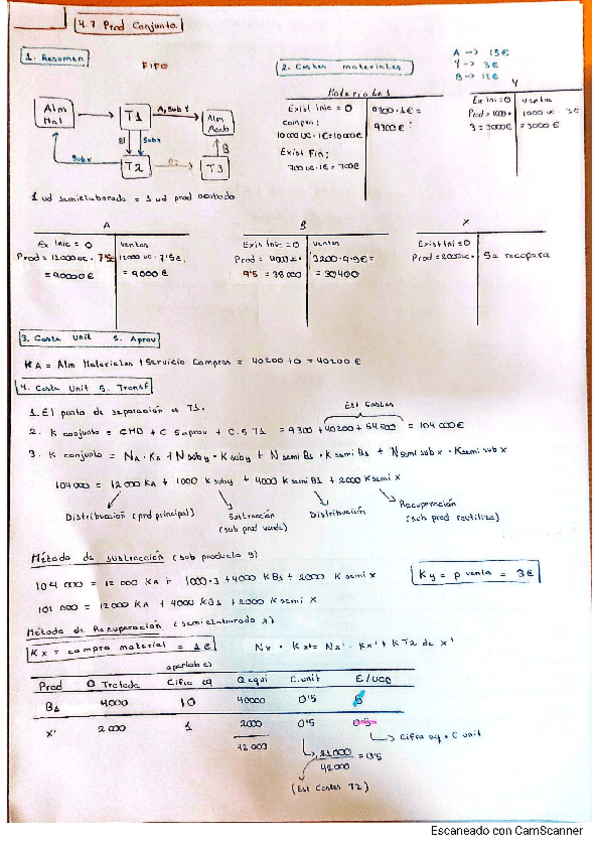 4.7 Prod Conjunta
1. Resumen
FIFO
2. Costes materiales
A -> 15€
Y -> 3€
B -> 12€
Alm Mat
T1
A, Sub Y
Alm Acab
B1
Sub x
Sub x
T2
B2
T3
B
1 ud semielaborado = 1 ud prod acabado
Materiales
Exist Inic = 0
9300 · 1€ =
compra:
9300€
10000 uc · 1€ = 10000€
Exist Fin:
700 uc · 1€ = 700€
Y
Ex Ini = 0
ventas
Prod = 1000 ·
1000 uc · 3€
3 = 3000€
= 3000€
A
Ex Inic = 0
ventas
Prod = 12000 uc · 7'5€
12000 uc · 7'5€
= 90000€
= 9000€
B
Exist Inic = 0
ventas
Prod = 4000 uc ·
3200 · 9'5€ =
9'5 = 38000
= 30400
X
Exist Ini = 0
Prod = 2000 uc ·
Se recupera
3. Coste Unit S. Aprov
KA = Alm Materiales + Servicio Compras = 40200 + 0 = 40200€
4. Coste Unit S. Transf
1. El punto de separación es T1.
Est Costes
2. K conjunto = CMD + C S aprov + C. S T1 = 9300 + 40200 + 54500 = 104000€
3. K conjunto = NA · KA + N sub y · K sub y + N semi B1 · K semi B1 + N semi sub x · K semi sub x
104000 = 12000 KA + 1000 K sub y + 4000 K semi B1 + 2000 K semi x
Distribución (prd principal)
Sustracción (sub prod vende)
Distribución
Recuperación (sub prod reutiliza)
Método de sustracción (sub producto y)
104000 = 12000 KA + 1000·3 + 4000 KB1 + 2000 K semi x
Ky = p venta = 3€
101000 = 12000 KA + 4000 KB1 + 2000 K semi X
Método de Recuperación (semielaborado x)
Kx = compra material = 1€
Nx · Kx = Nx' · Kx' + KT2 de x'
apartado c)
Prod
Q Tratada
Cifra eq
Q equi
C. unit
€/uco
B1
4000
10
40000
0'5
5
x'
2000
1
2000
0'5
0'5
42000
Cifra eq · C unit
21000/42000 = 0'5
(Est Costes T2)
Escaneado con CamScanner